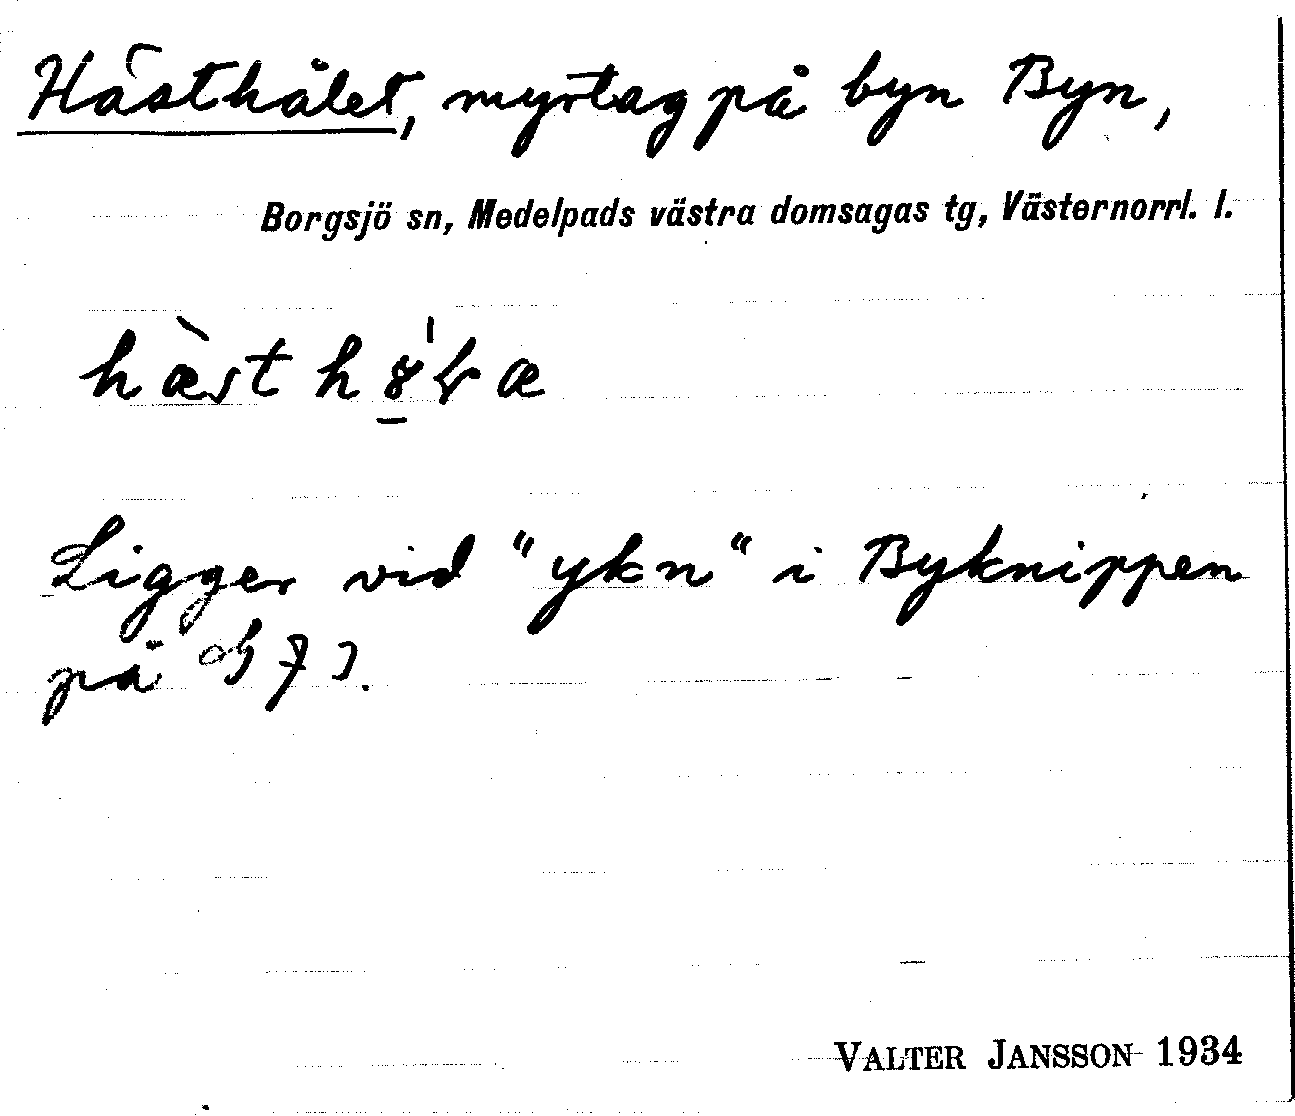 Hästhålet, myrtag på byn Byn,
Borgsjö sn, Medelpads västra domsagas tg, Västernorrl. l.
hæ̀st
Ligger vid "ykn" i Byknippen
på
VALTER JANSSON 1934